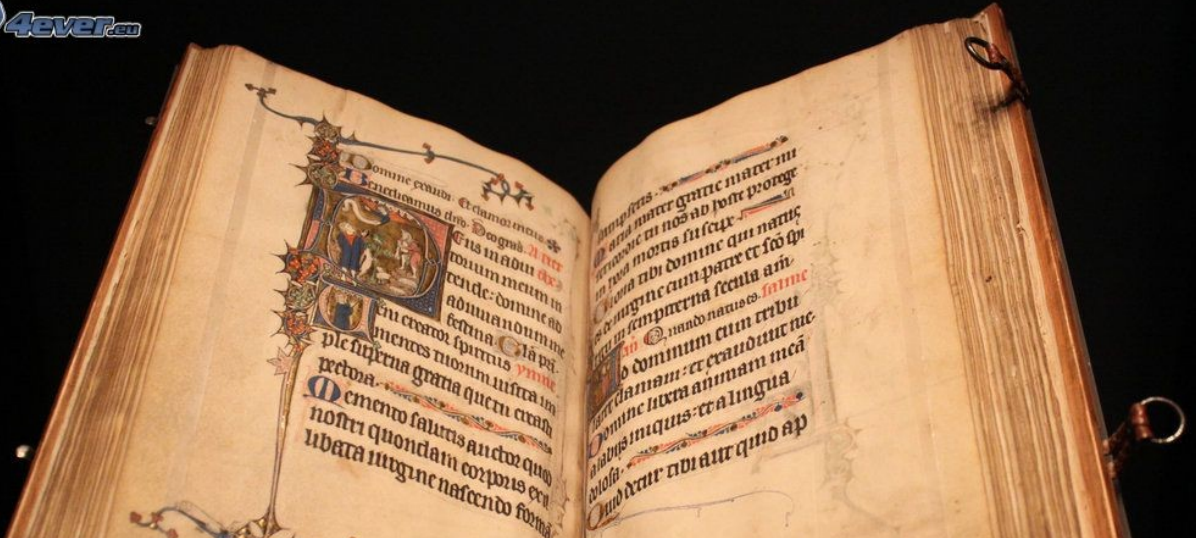 4ever.eu
Domine exaudi. Et clamor meus
Benedicamus dno. Deo gras.
eus in adiu
torium meum in
tende: domine ad
adiuuandum me
festina. Gla pa
eni creator spiritus ymne
mentes tuorum uisita im
ple superna gratia que tu creasti
pectora.
Memento salutis auctor quod
nostri quondam corporis ex
libata uirgine nascendo formā
sumpseris.
aria mater gratie mater mi
sericordie tu nos ab hoste protege
in hora mortis suscipe
loria tibi domine qui natus
es de uirgine cum patre et sco spu
in sempiterna secula am
Quando natus es. salme
Ad dominum cum tribu
larer clamaui: et exaudiuit me.
Domine libera animam meā
a labijs iniquis: et a lingua
dolosa.
Quid detur tibi aut quid ap